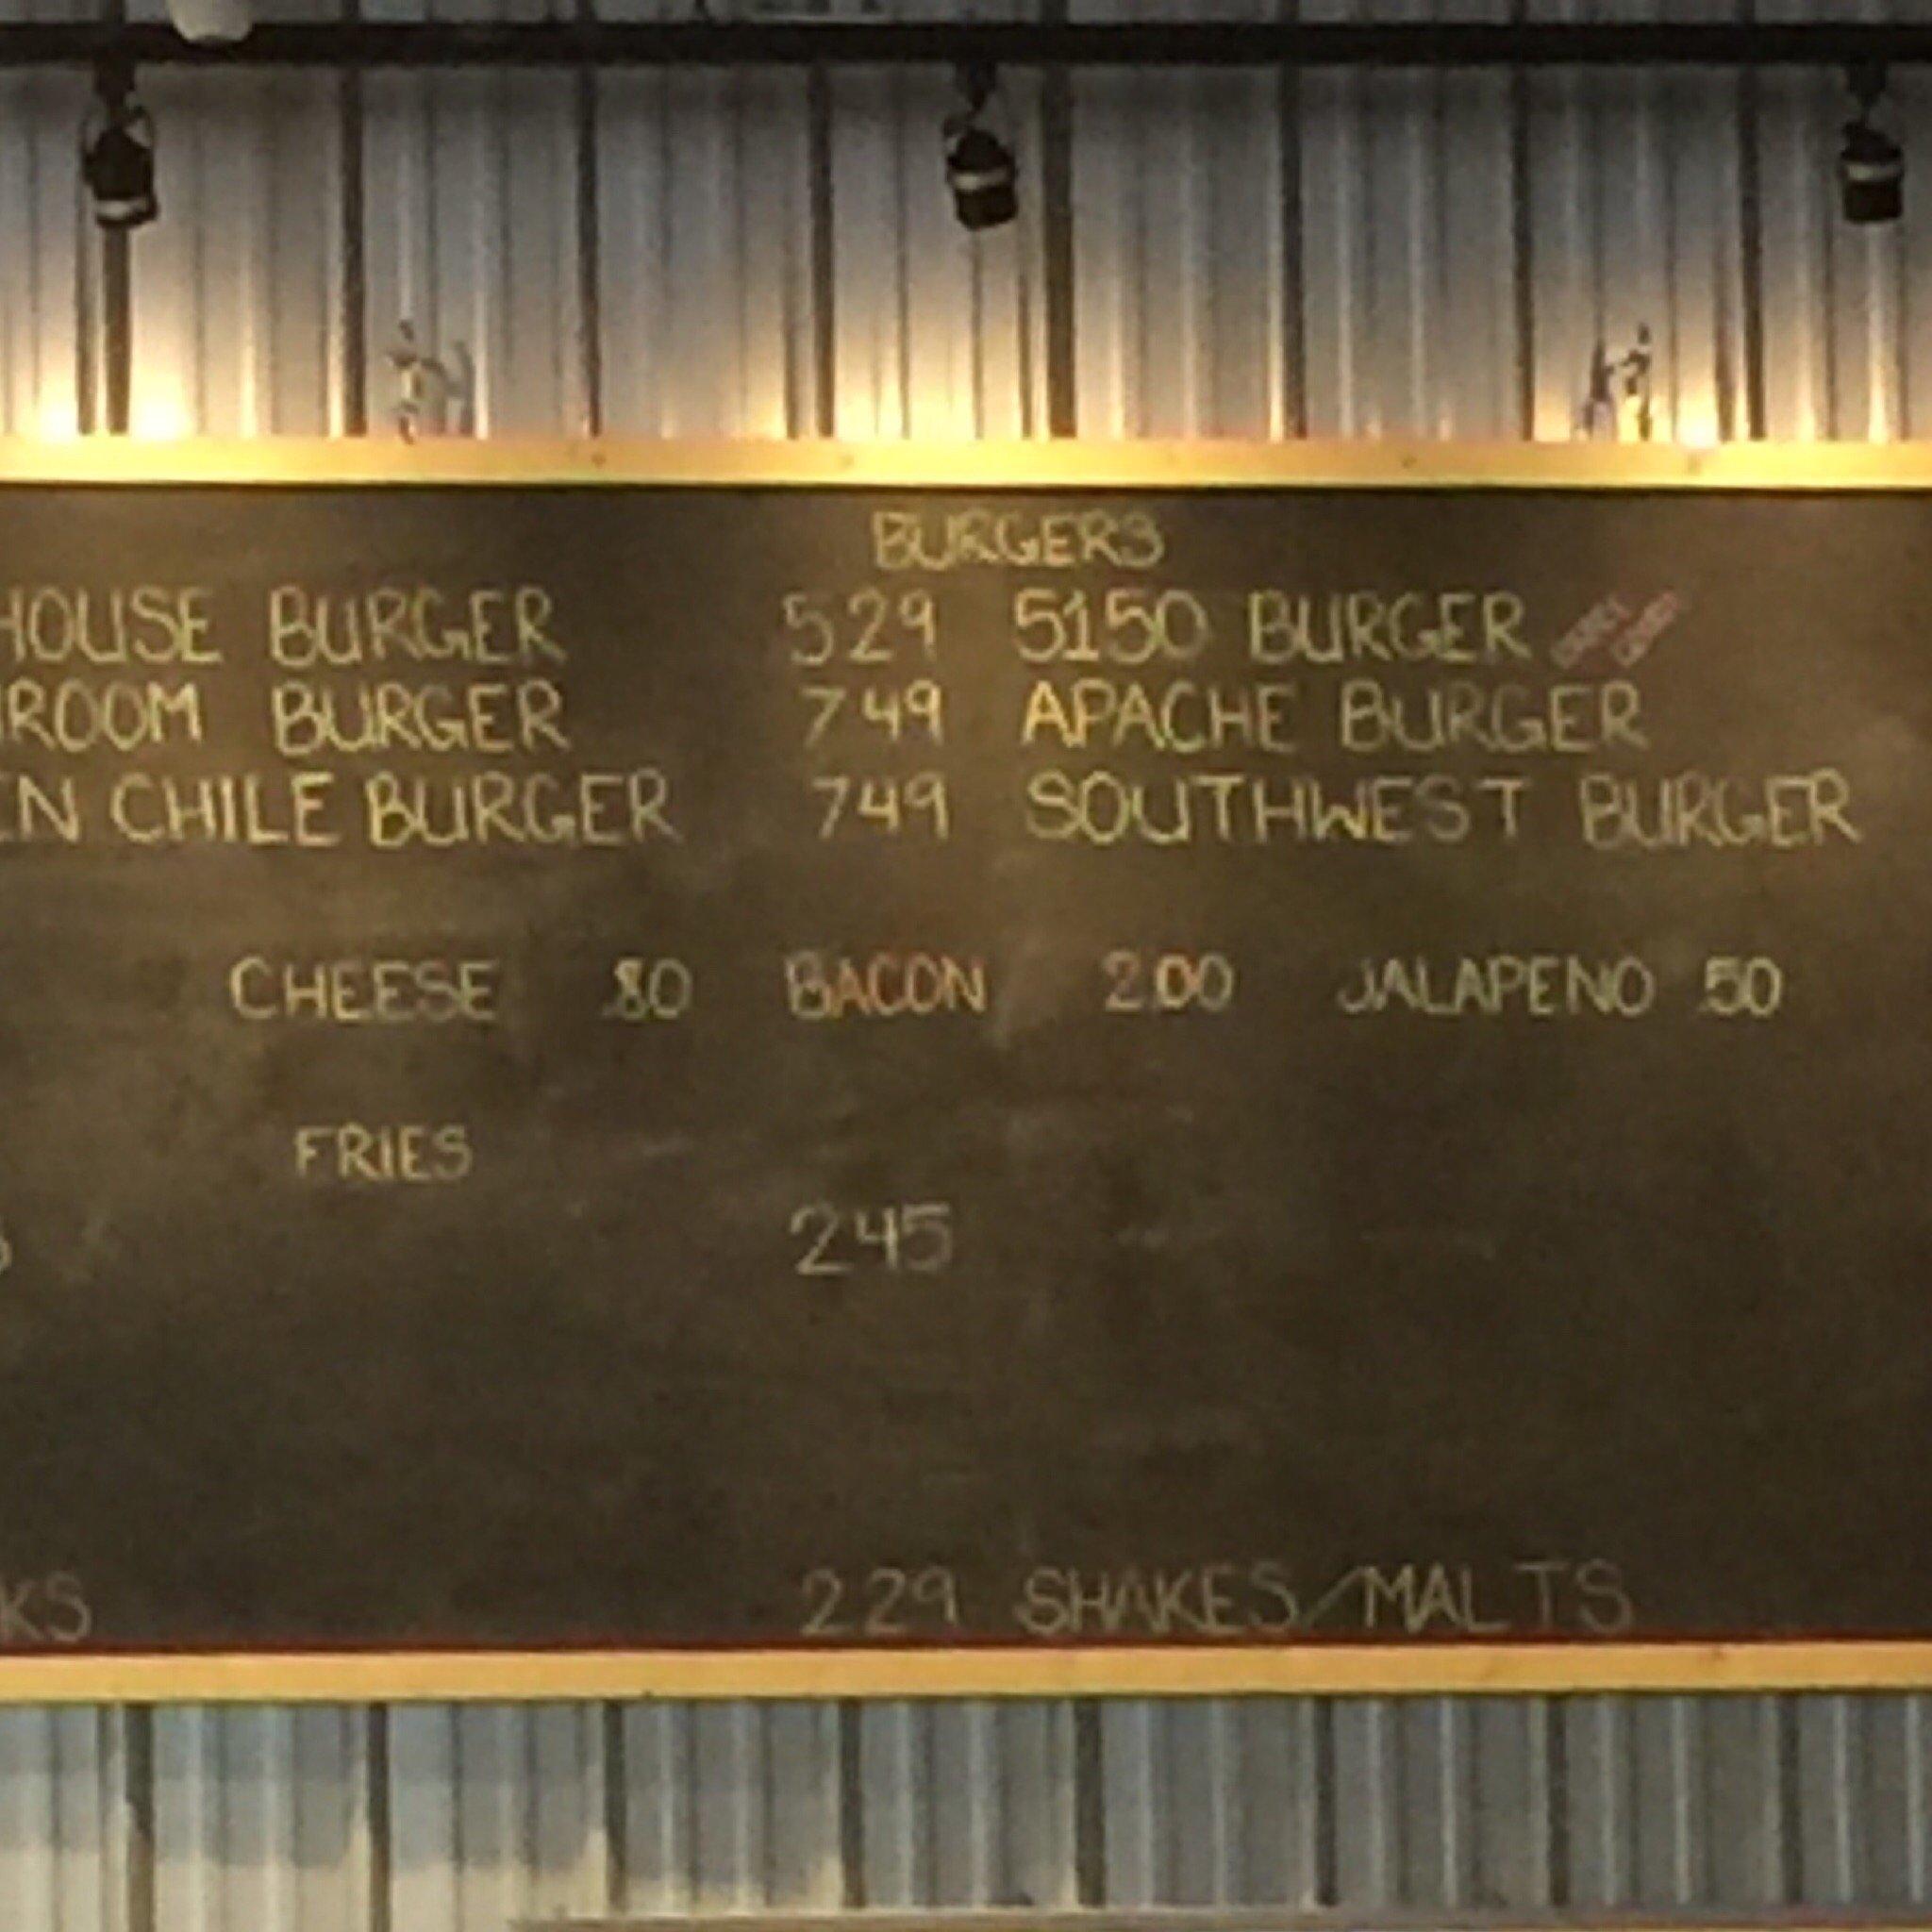 BURGERS
HOUSE BURGER 529 5150 BURGER
ROOM BURGER 749 APACHE BURGER
EN CHILE BURGER 749 SOUTHWEST BURGER
CHEESE .80 BACON 2.00 JALAPENO .50
FRIES
245
KS 229 SHAKES/MALTS